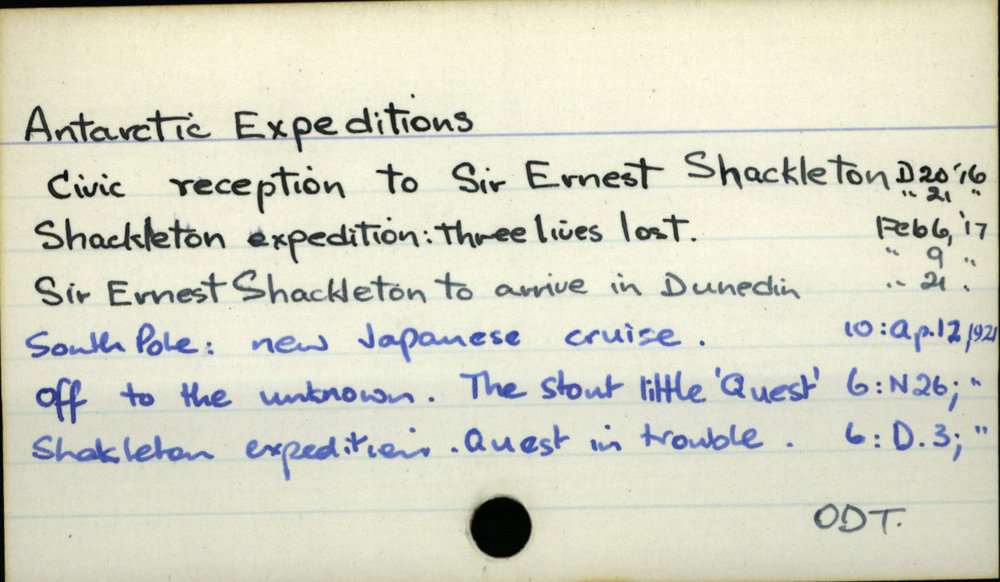 Antarctic Expeditions
Civic reception to Sir Ernest Shackleton D20 '16
" 21 "
Shackleton expedition: three lives lost. Feb 6, '17
" 9 "
Sir Ernest Shackleton to arrive in Dunedin " 21 "
South Pole: new Japanese cruise. 10: Ap. 12, 1921
off to the unknown. The stout little 'Quest' 6: N26; "
Shakleton expedition. Quest in trouble. 6: D. 3; "
ODT.